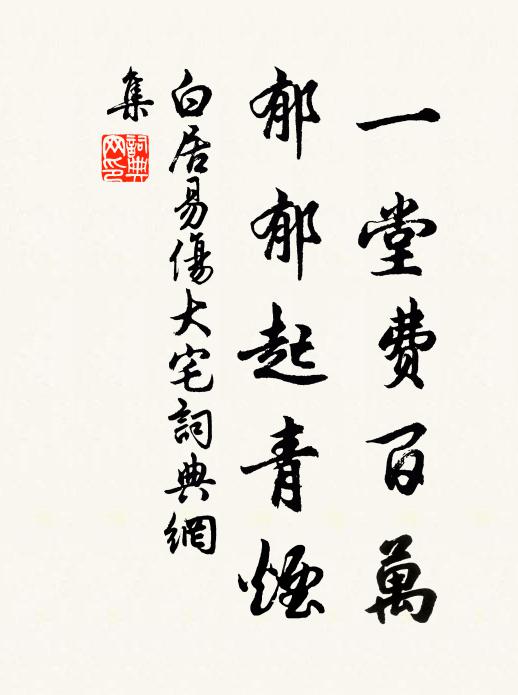 一堂費百萬
郁郁起青煙
白居易傷大宅詞典網
集
詞典
网印